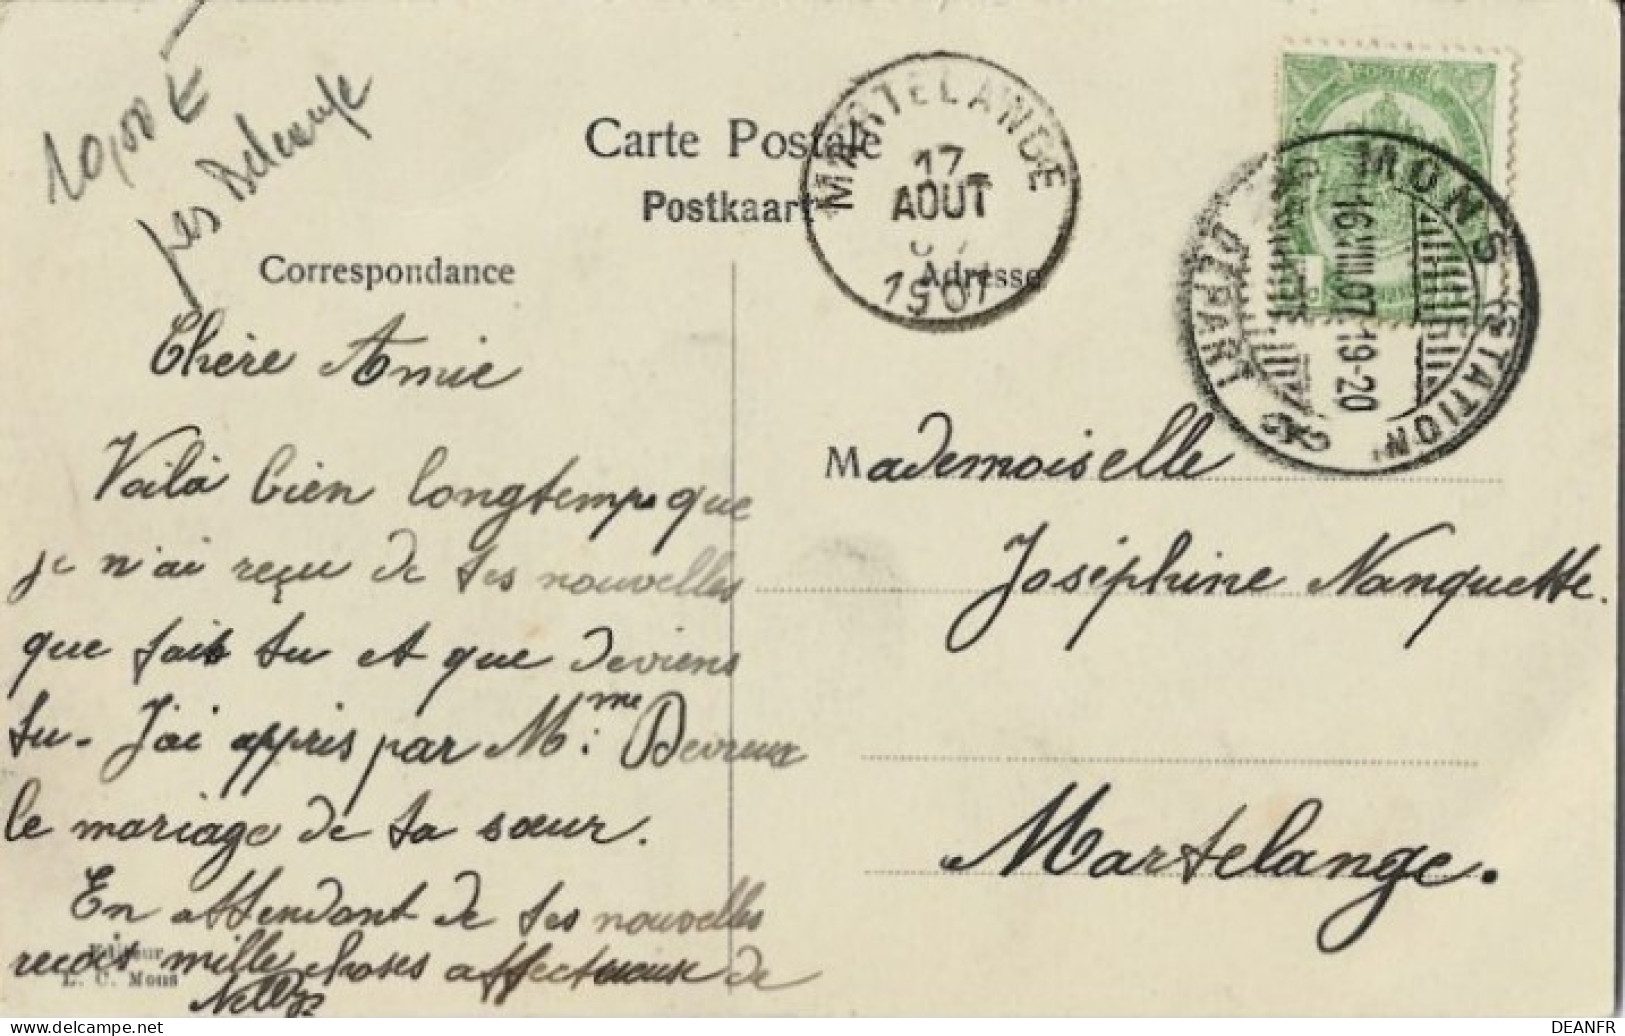 10,00 E
Carte Postale
Postkaart
Correspondance
Adresse
MARTELANGE
17
AOUT
1907
POSTES
MONS (STATION)
DEPART
16 VIII 07 19-20
Chère Amie
Voilà bien longtemps que
je n'ai reçu de tes nouvelles
que fais tu et que deviens
tu. J'ai appris par Mme Devreux
le mariage de ta sœur.
En attendant de tes nouvelles
reçois mille choses affectueuse de
Nelly
Mademoiselle
Joséphine Nanquette.
Martelange.
Editeur
L. C. Mons
delcampe.net
DEANFR